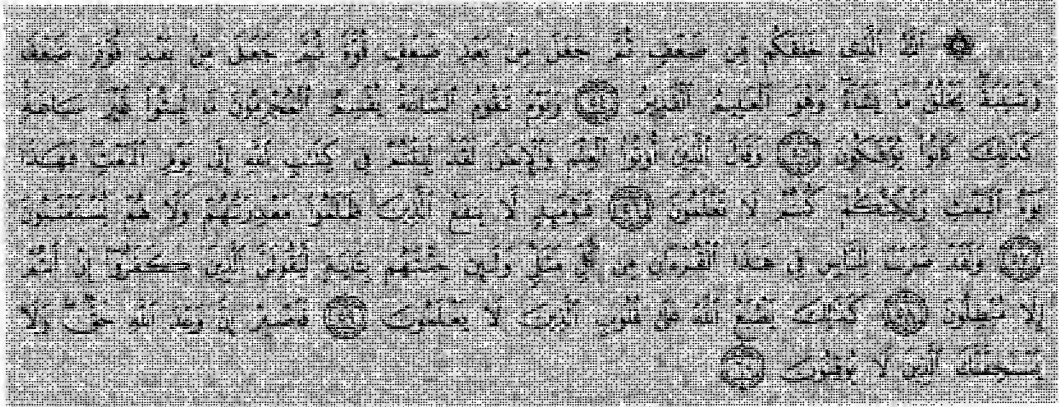 ۞ ٱللَّهُ ٱلَّذِى خَلَقَكُم مِّن ضَعْفٍ ثُمَّ جَعَلَ مِنۢ بَعْدِ ضَعْفٍ قُوَّةً ثُمَّ جَعَلَ مِنۢ بَعْدِ قُوَّةٍ ضَعْفًا
وَشَيْبَةً يَخْلُقُ مَا يَشَآءُ وَهُوَ ٱلْعَلِيمُ ٱلْقَدِيرُ ٥٤ وَيَوْمَ تَقُومُ ٱلسَّاعَةُ يُقْسِمُ ٱلْمُجْرِمُونَ مَا لَبِثُوا۟ غَيْرَ سَاعَةٍ
كَذَٰلِكَ كَانُوا۟ يُؤْفَكُونَ ٥٥ وَقَالَ ٱلَّذِينَ أُوتُوا۟ ٱلْعِلْمَ وَٱلْإِيمَٰنَ لَقَدْ لَبِثْتُمْ فِى كِتَٰبِ ٱللَّهِ إِلَىٰ يَوْمِ ٱلْبَعْثِ فَهَٰذَا
يَوْمُ ٱلْبَعْثِ وَلَٰكِنَّكُمْ كُنتُمْ لَا تَعْلَمُونَ ٥٦ فَيَوْمَئِذٍ لَّا يَنفَعُ ٱلَّذِينَ ظَلَمُوا۟ مَعْذِرَتُهُمْ وَلَا هُمْ يُسْتَعْتَبُونَ
٥٧ وَلَقَدْ ضَرَبْنَا لِلنَّاسِ فِى هَٰذَا ٱلْقُرْءَانِ مِن كُلِّ مَثَلٍ وَلَئِن جِئْتَهُم بِـَٔايَةٍ لَّيَقُولَنَّ ٱلَّذِينَ كَفَرُوٓا۟ إِنْ أَنتُمْ
إِلَّا مُبْطِلُونَ ٥٨ كَذَٰلِكَ يَطْبَعُ ٱللَّهُ عَلَىٰ قُلُوبِ ٱلَّذِينَ لَا يَعْلَمُونَ ٥٩ فَٱصْبِرْ إِنَّ وَعْدَ ٱللَّهِ حَقٌّ وَلَا
يَسْتَخِفَّنَّكَ ٱلَّذِينَ لَا يُوقِنُونَ ٦٠